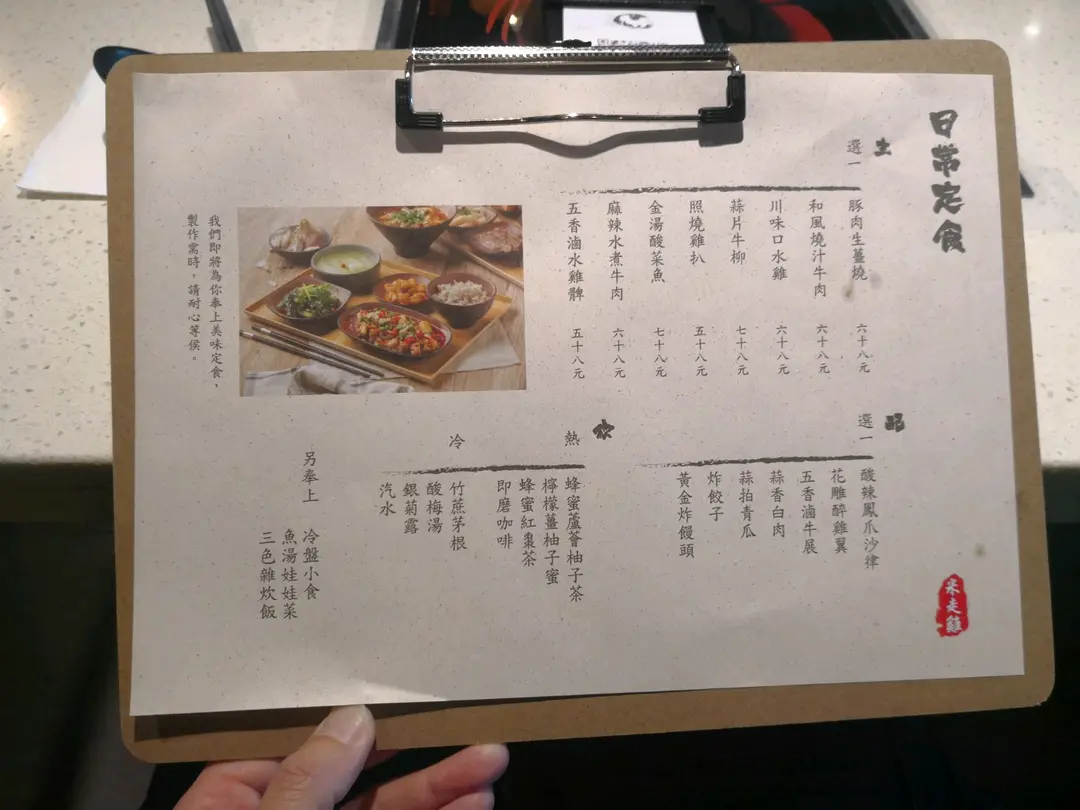 日常定食
主
選一
豚肉生薑燒 六十八元
和風燒汁牛肉 六十八元
川味口水雞 六十八元
蒜片牛柳 七十八元
照燒雞扒 五十八元
金湯酸菜魚 七十八元
麻辣水煮牛肉 六十八元
五香滷水雞髀 五十八元
品
選一
酸辣鳳爪沙律
花雕醉雞翼
五香滷牛展
蒜香白肉
蒜拍青瓜
炸餃子
黃金炸饅頭
飲
熱
蜂蜜蘆薈柚子茶
檸檬薑柚子蜜
蜂蜜紅棗茶
即磨咖啡
冷
竹蔗茅根
酸梅湯
銀菊露
汽水
另奉上
冷盤小食
魚湯娃娃菜
三色雜炊飯
我們即將為你奉上美味定食，
製作需時，請耐心等侯。
米走雞